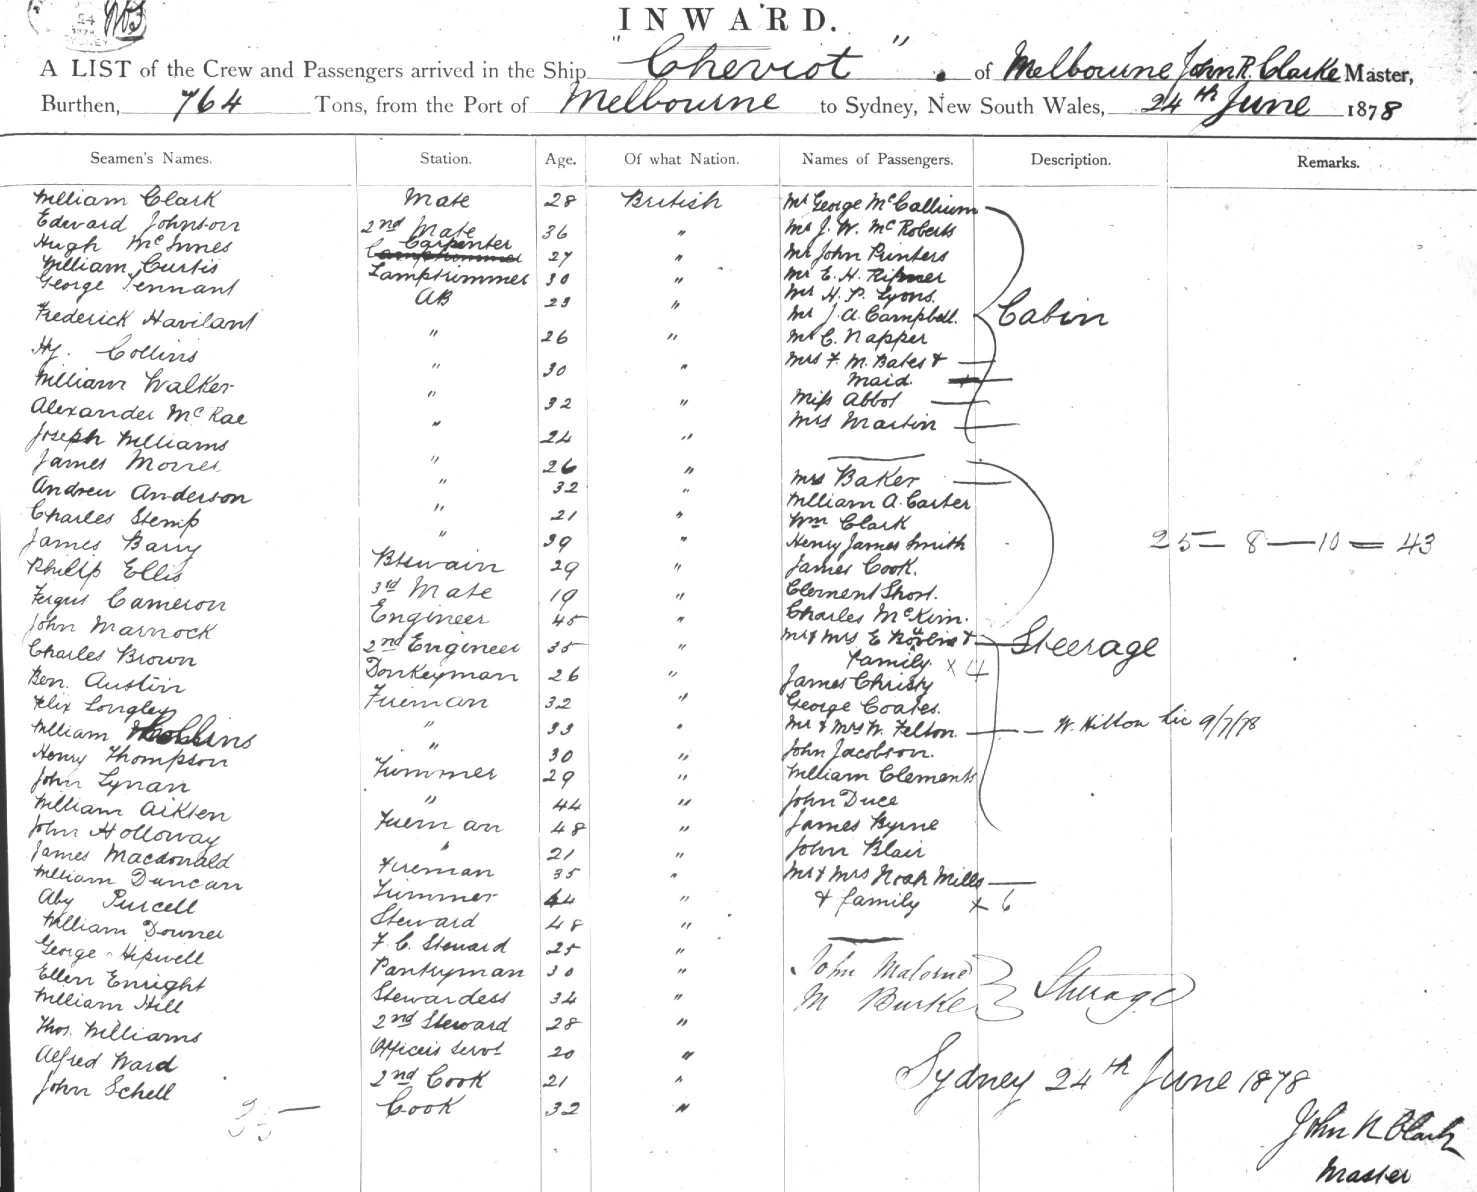 INWARD.
A LIST of the Crew and Passengers arrived in the Ship "Cheviot" of Melbourne John R. Clarke Master,
Burthen, 764 Tons, from the Port of Melbourne to Sydney, New South Wales, 24th June 1878
Seamen's Names. Station. Age. Of what Nation. Names of Passengers. Description. Remarks.
William Clark Mate 28 British Mr George McCallium
Edward Johnson 2nd Mate 36 " Mr J. W. McRoberts
Hugh McInnes Carpenter 27 " Mr John Printers
William Curtis Lamptrimmer 30 " Mr E. H.
George Tennant AB 23 " Mr H. P. Lyons.
Mr J. A. Campbell. Cabin
Frederick Havilant " 26 " Mr C. Napper
Hy. Collins " 30 " Mrs F. M. Bates &
Maid.
William Walker " 32 " Miss Abbot
Alexander McRae " 24 " Mrs Martin
Joseph Williams " 26 "
James " 32 " Mrs Baker
Andrew Anderson " 21 " William A. Carter
Charles Stemp " 39 " Wm Clark
James Barry Btswain 29 " Henry James Smith 25 — 8 — 10 = 43
Philip Ellis 3rd Mate 19 " James Cook.
Fergus Cameron Engineer 45 " Clement Short.
John Marnock 2nd Engineer 35 " Charles McKim.
Charles Brown Donkeyman 26 " Mr & Mrs E & Steerage
Family. x 4
Ben. Austin Fireman 32 " James Christy
Felix Longley " 33 " George Coates.
William Collins " 30 " Mr & Mrs W. Felton — W. Hilton 9/7/78
Henry Thompson Trimmer 29 " John Jacobson.
John Lynan " 44 " William Clements
William Aikten Fireman 48 " John Duce
John Holloway " 21 " James Byrne
James Macdonald Fireman 35 " John Blair
William Duncan Trimmer 44 " Mr & Mrs Noah Mills
Aby Purcell Steward 48 " & family x 6
William Downer F. C. Steward 25 "
George Hipwell Pantryman 30 " John Malone
Ellen Enright Stewardess 34 " M Burke Steerage
William Hill 2nd Steward 28 "
Thos. Williams Officers Servt 20 "
Alfred Ward 2nd Cook 21 " Sydney 24th June 1878
John Schell Cook 32 "
35
John R Clark
Master